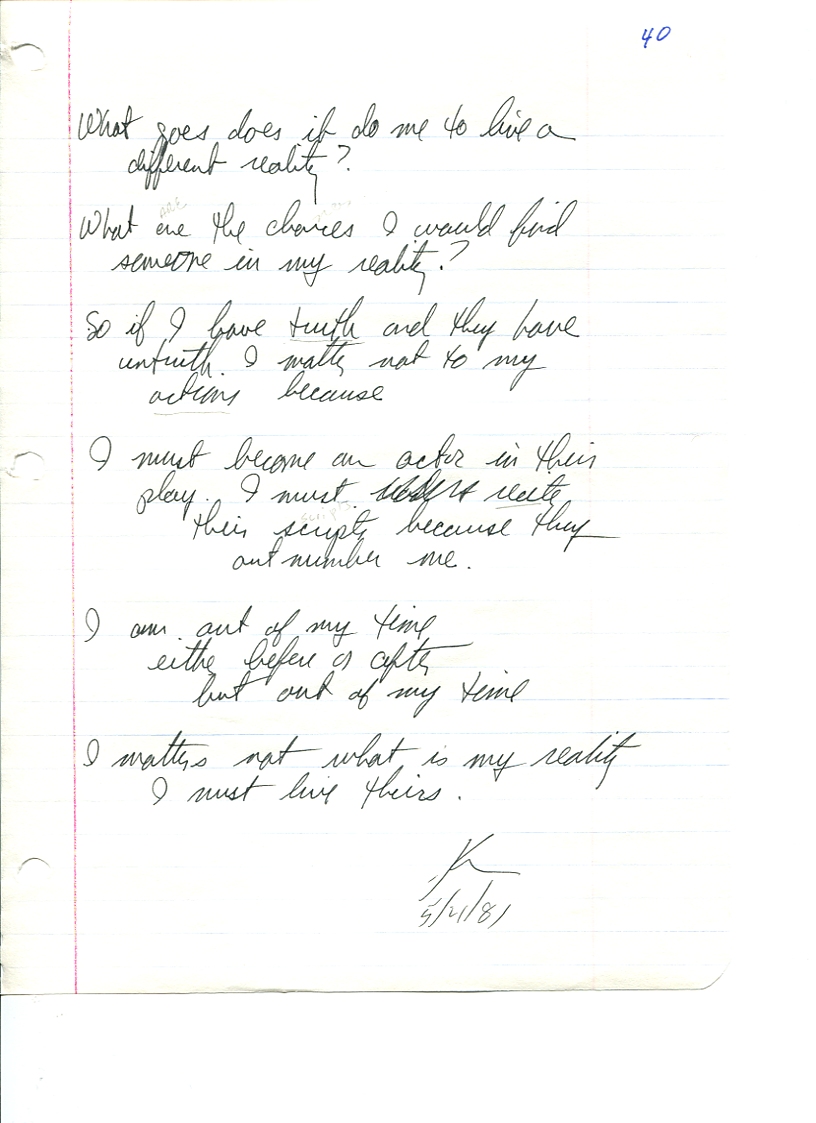 40
What goes does it do me to live a
different reality?
are
What are the chances I would find
someone in my reality?
So if I have truth and they have
untruth. I matters not to my
actions because
I must become an actor in their
play. I must recite
scripts
their scripts because they
out number me.
I am out of my time
either before or after
but out of my time
I matters not what is my reality
I must live theirs.
K
5/21/81